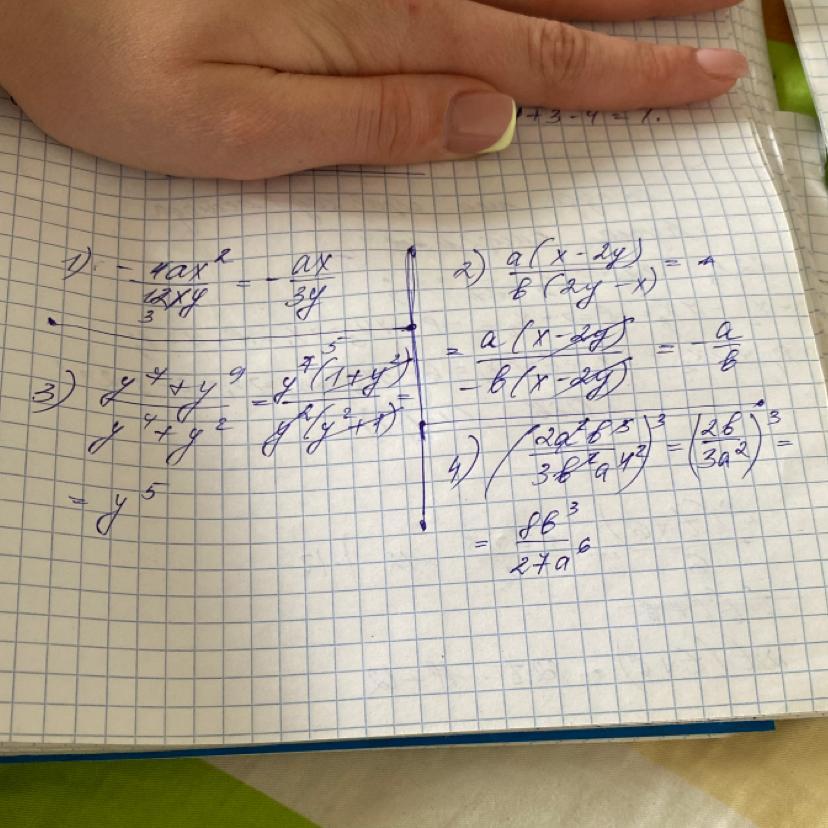 +3-4=1.
1) -4ax²/12xy = -ax/3y
3
2) a(x-2y)/b(2y-x) = -
= a(x-2y)/-b(x-2y) = -a/b
3) y⁷+y⁹/y⁴+y² = y⁷(1+y²)/y²(y²+1) =
5
= y⁵
4) (2a²b³/3b²a⁴)³ = (2b/3a²)³ =
2
= 8b³/27a⁶